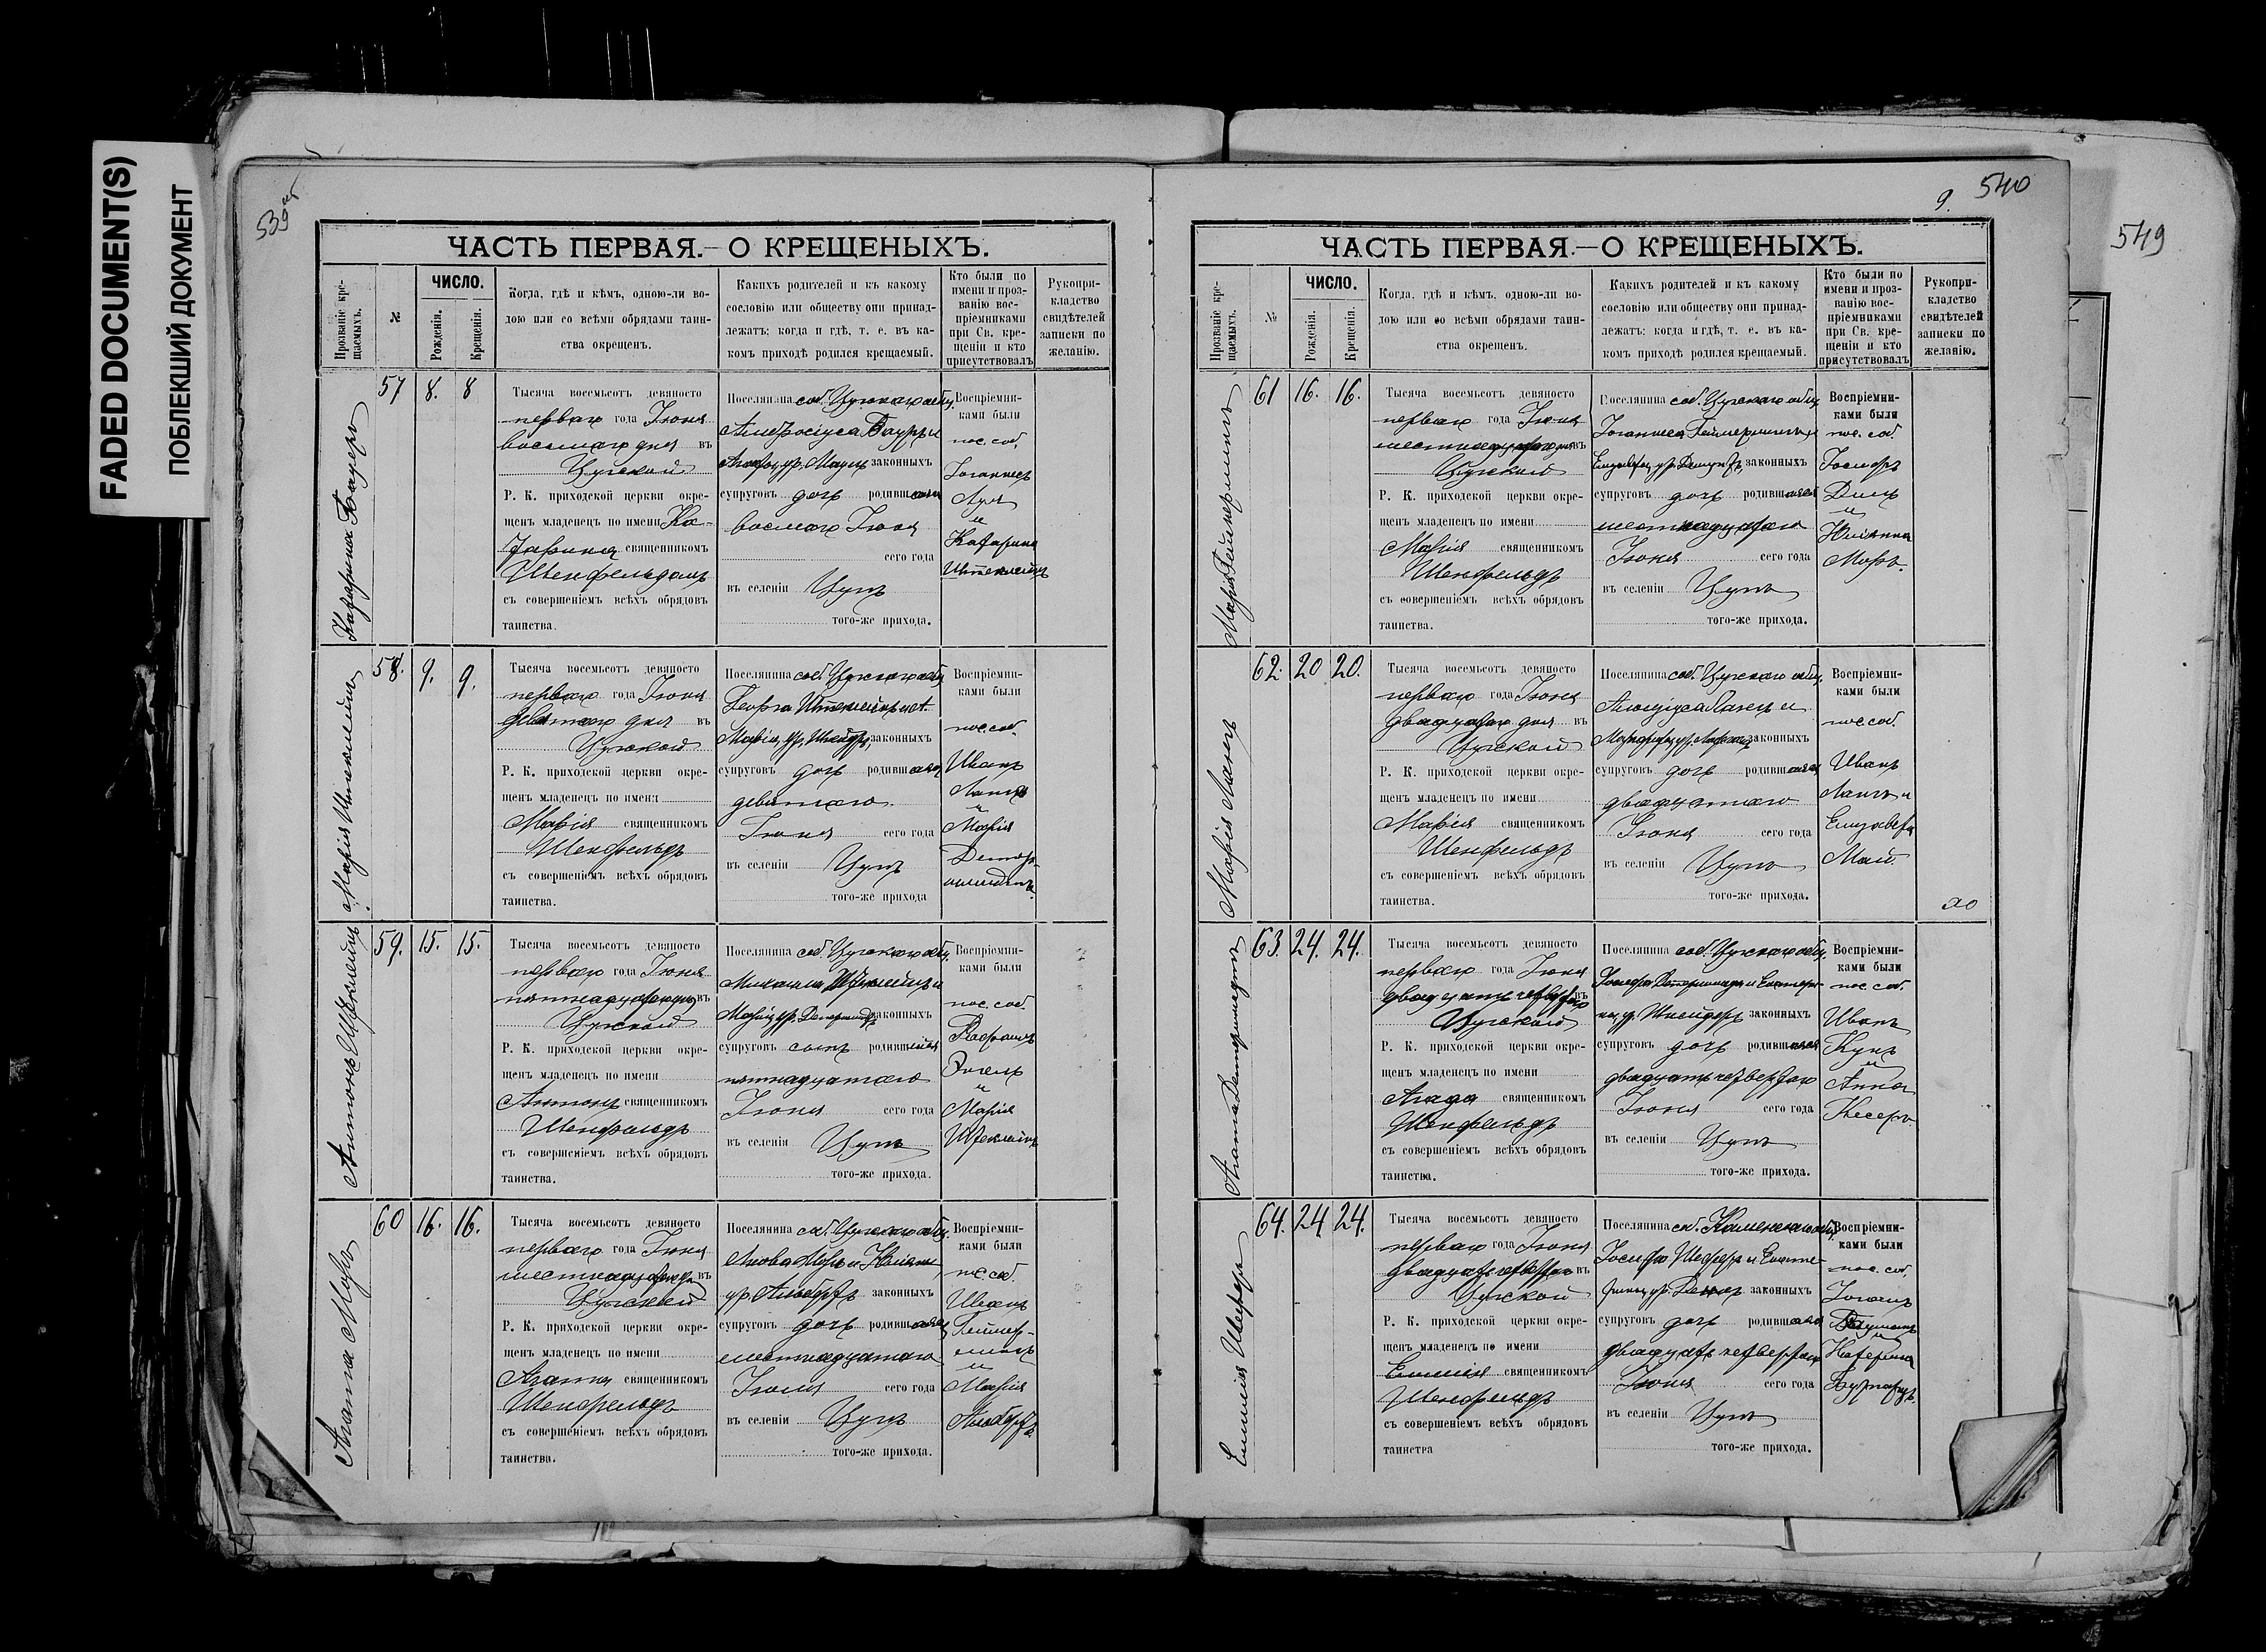 FADED DOCUMENT(S)
ПОБЛЕКШИЙ ДОКУМЕНТ
539 об
ЧАСТЬ ПЕРВАЯ.—О КРЕЩЕНЫХЪ.
Прозваніе кре-
щаемыхъ.
№
ЧИСЛО.
Рожденія.
Крещенія.
Когда, гдѣ и кѣмъ, одною-ли во-
дою или со всѣми обрядами таин-
ства окрещенъ.
Какихъ родителей и къ какому
сословію или обществу они принад-
лежатъ; когда и гдѣ, т. е. въ ка-
комъ приходѣ родился крещаемый.
Кто были по
имени и проз-
ванію вос-
пріемниками
при Св. кре-
щеніи и кто
присутствовалъ
Рукопри-
кладство
свидѣтелей
записки по
желанію.
Катарина Бауеръ
57
8.
8
Тысяча восемьсотъ девяносто
перваго года Іюня
восьмаго дня въ
Цугской
Р. К. приходской церкви окре-
щенъ младенецъ по имени Ка-
тарина священникомъ
Шенфельдомъ
съ совершеніемъ всѣхъ обрядовъ
таинства.
Поселянина соб. Цугскаго общ.
Амброзіуса Бауеръ и
законныхъ
супруговъ дочь родившаяся
восьмаго Іюня
сего года
въ селеніи Цугъ
того-же прихода.
Воспріемни-
ками были
пос. соб.
Іоганнесъ
и
Катарина
Штеклейнъ
Марія Штеклейнъ
58.
9.
9.
Тысяча восемьсотъ девяносто
перваго года Іюня
девятаго дня въ
Цугской
Р. К. приходской церкви окре-
щенъ младенецъ по имени
Марія священникомъ
Шенфельдъ
съ совершеніемъ всѣхъ обрядовъ
таинства.
Поселянина соб. Цугскаго общ.
Георга Штеклейнъ и А.
Маріи, ур. Шнейдеръ, законныхъ
супруговъ дочь родившаяся
девятаго
Іюня сего года
въ селеніи Цугъ
того-же прихода
Воспріемни-
ками были
пос. соб.
Иванъ
Лангъ
и
Марія
Антонъ Штеклейнъ
59.
15.
15.
Тысяча восемьсотъ девяносто
перваго года Іюня
пятнадцатаго дня въ
Цугской
Р. К. приходской церкви окре-
щенъ младенецъ по имени
Антонъ священникомъ
Шенфельдъ
съ совершеніемъ всѣхъ обрядовъ
таинства.
Поселянина соб. Цугскаго общ.
Михаила Штеклейнъ и
Маріи, ур. законныхъ
супруговъ сынъ родившійся
пятнадцатаго
Іюня сего года
въ селеніи Цугъ
того-же прихода.
Воспріемни-
ками были
пос. соб.
и
Марія
Штеклейнъ
Агата Моръ
60
16.
16.
Тысяча восемьсотъ девяносто
перваго года Іюня
шестнадцатаго дня въ
Цугской
Р. К. приходской церкви окре-
щенъ младенецъ по имени
Агата священникомъ
Шенфельдъ
съ совершеніемъ всѣхъ обрядовъ
таинства.
Поселянина соб. Цугскаго общ.
Якова Моръ и Юліанны,
ур. Альбертъ законныхъ
супруговъ дочь родившаяся
шестнадцатаго
Іюня сего года
въ селеніи Цугъ
того-же прихода.
Воспріемни-
ками были
пос. соб.
Иванъ
и
Марія
Альбертъ
9.
540
549
ЧАСТЬ ПЕРВАЯ.—О КРЕЩЕНЫХЪ.
Прозваніе кре-
щаемыхъ.
№
ЧИСЛО.
Рожденія.
Крещенія.
Когда, гдѣ и кѣмъ, одною-ли во-
дою или со всѣми обрядами таин-
ства окрещенъ.
Какихъ родителей и къ какому
сословію или обществу они принад-
лежатъ; когда и гдѣ, т. е. въ ка-
комъ приходѣ родился крещаемый.
Кто были по
имени и проз-
ванію вос-
пріемниками
при Св. кре-
щеніи и кто
присутствовалъ
Рукопри-
кладство
свидѣтелей
записки по
желанію.
Марія
61
16.
16.
Тысяча восемьсотъ девяносто
перваго года Іюня
шестнадцатаго дня въ
Цугской
Р. К. приходской церкви окре-
щенъ младенецъ по имени
Марія священникомъ
Шенфельдъ
съ совершеніемъ всѣхъ обрядовъ
таинства.
Поселянина соб. Цугскаго общ.
Іоганнеса
законныхъ
супруговъ дочь родившаяся
шестнадцатаго
Іюня сего года
въ селеніи Цугъ
того-же прихода.
Воспріемни-
ками были
пос. соб.
Іосифъ
Диль
и
Юліанна
Моръ.
Марія Лангъ
62.
20
20.
Тысяча восемьсотъ девяносто
перваго года Іюня
двадцатаго дня въ
Цугской
Р. К. приходской церкви окре-
щенъ младенецъ по имени
Марія священникомъ
Шенфельдъ
съ совершеніемъ всѣхъ обрядовъ
таинства.
Поселянина соб. Цугскаго общ.
Алоизіуса Лангъ и
законныхъ
супруговъ дочь родившаяся
двадцатаго
Іюня сего года
въ селеніи Цугъ
того-же прихода.
Воспріемни-
ками были
пос. соб.
Иванъ
Лангъ и
Елизавета
Май.
Агата
63.
24.
24.
Тысяча восемьсотъ девяносто
перваго года Іюня
двадцать четвертаго въ
Цугской
Р. К. приходской церкви окре-
щенъ младенецъ по имени
Агата священникомъ
Шенфельдъ
съ совершеніемъ всѣхъ обрядовъ
таинства.
Поселянина соб. Цугскаго общ.
Іосифа и Екатери-
ны, ур. Шнейдеръ законныхъ
супруговъ дочь родившаяся
двадцать четвертаго
Іюня сего года
въ селеніи Цугъ
того-же прихода.
Воспріемни-
ками были
пос. соб.
Иванъ
Кунъ
и
Анна
Кесеръ
Емилія Шеферъ
64.
24
24.
Тысяча восемьсотъ девяносто
перваго года Іюня
двадцать четвертаго въ
Цугской
Р. К. приходской церкви окре-
щенъ младенецъ по имени
Емилія священникомъ
Шенфельдъ
съ совершеніемъ всѣхъ обрядовъ
таинства
Поселянина соб. Каменскаго общ.
Іосифа Шеферъ и Екате-
рины, ур. законныхъ
супруговъ дочь родившаяся
двадцать четвертаго
Іюня сего года
въ селеніи Цугъ
того-же прихода.
Воспріемни-
ками были
пос. соб.
Іоганъ
и
Катерина